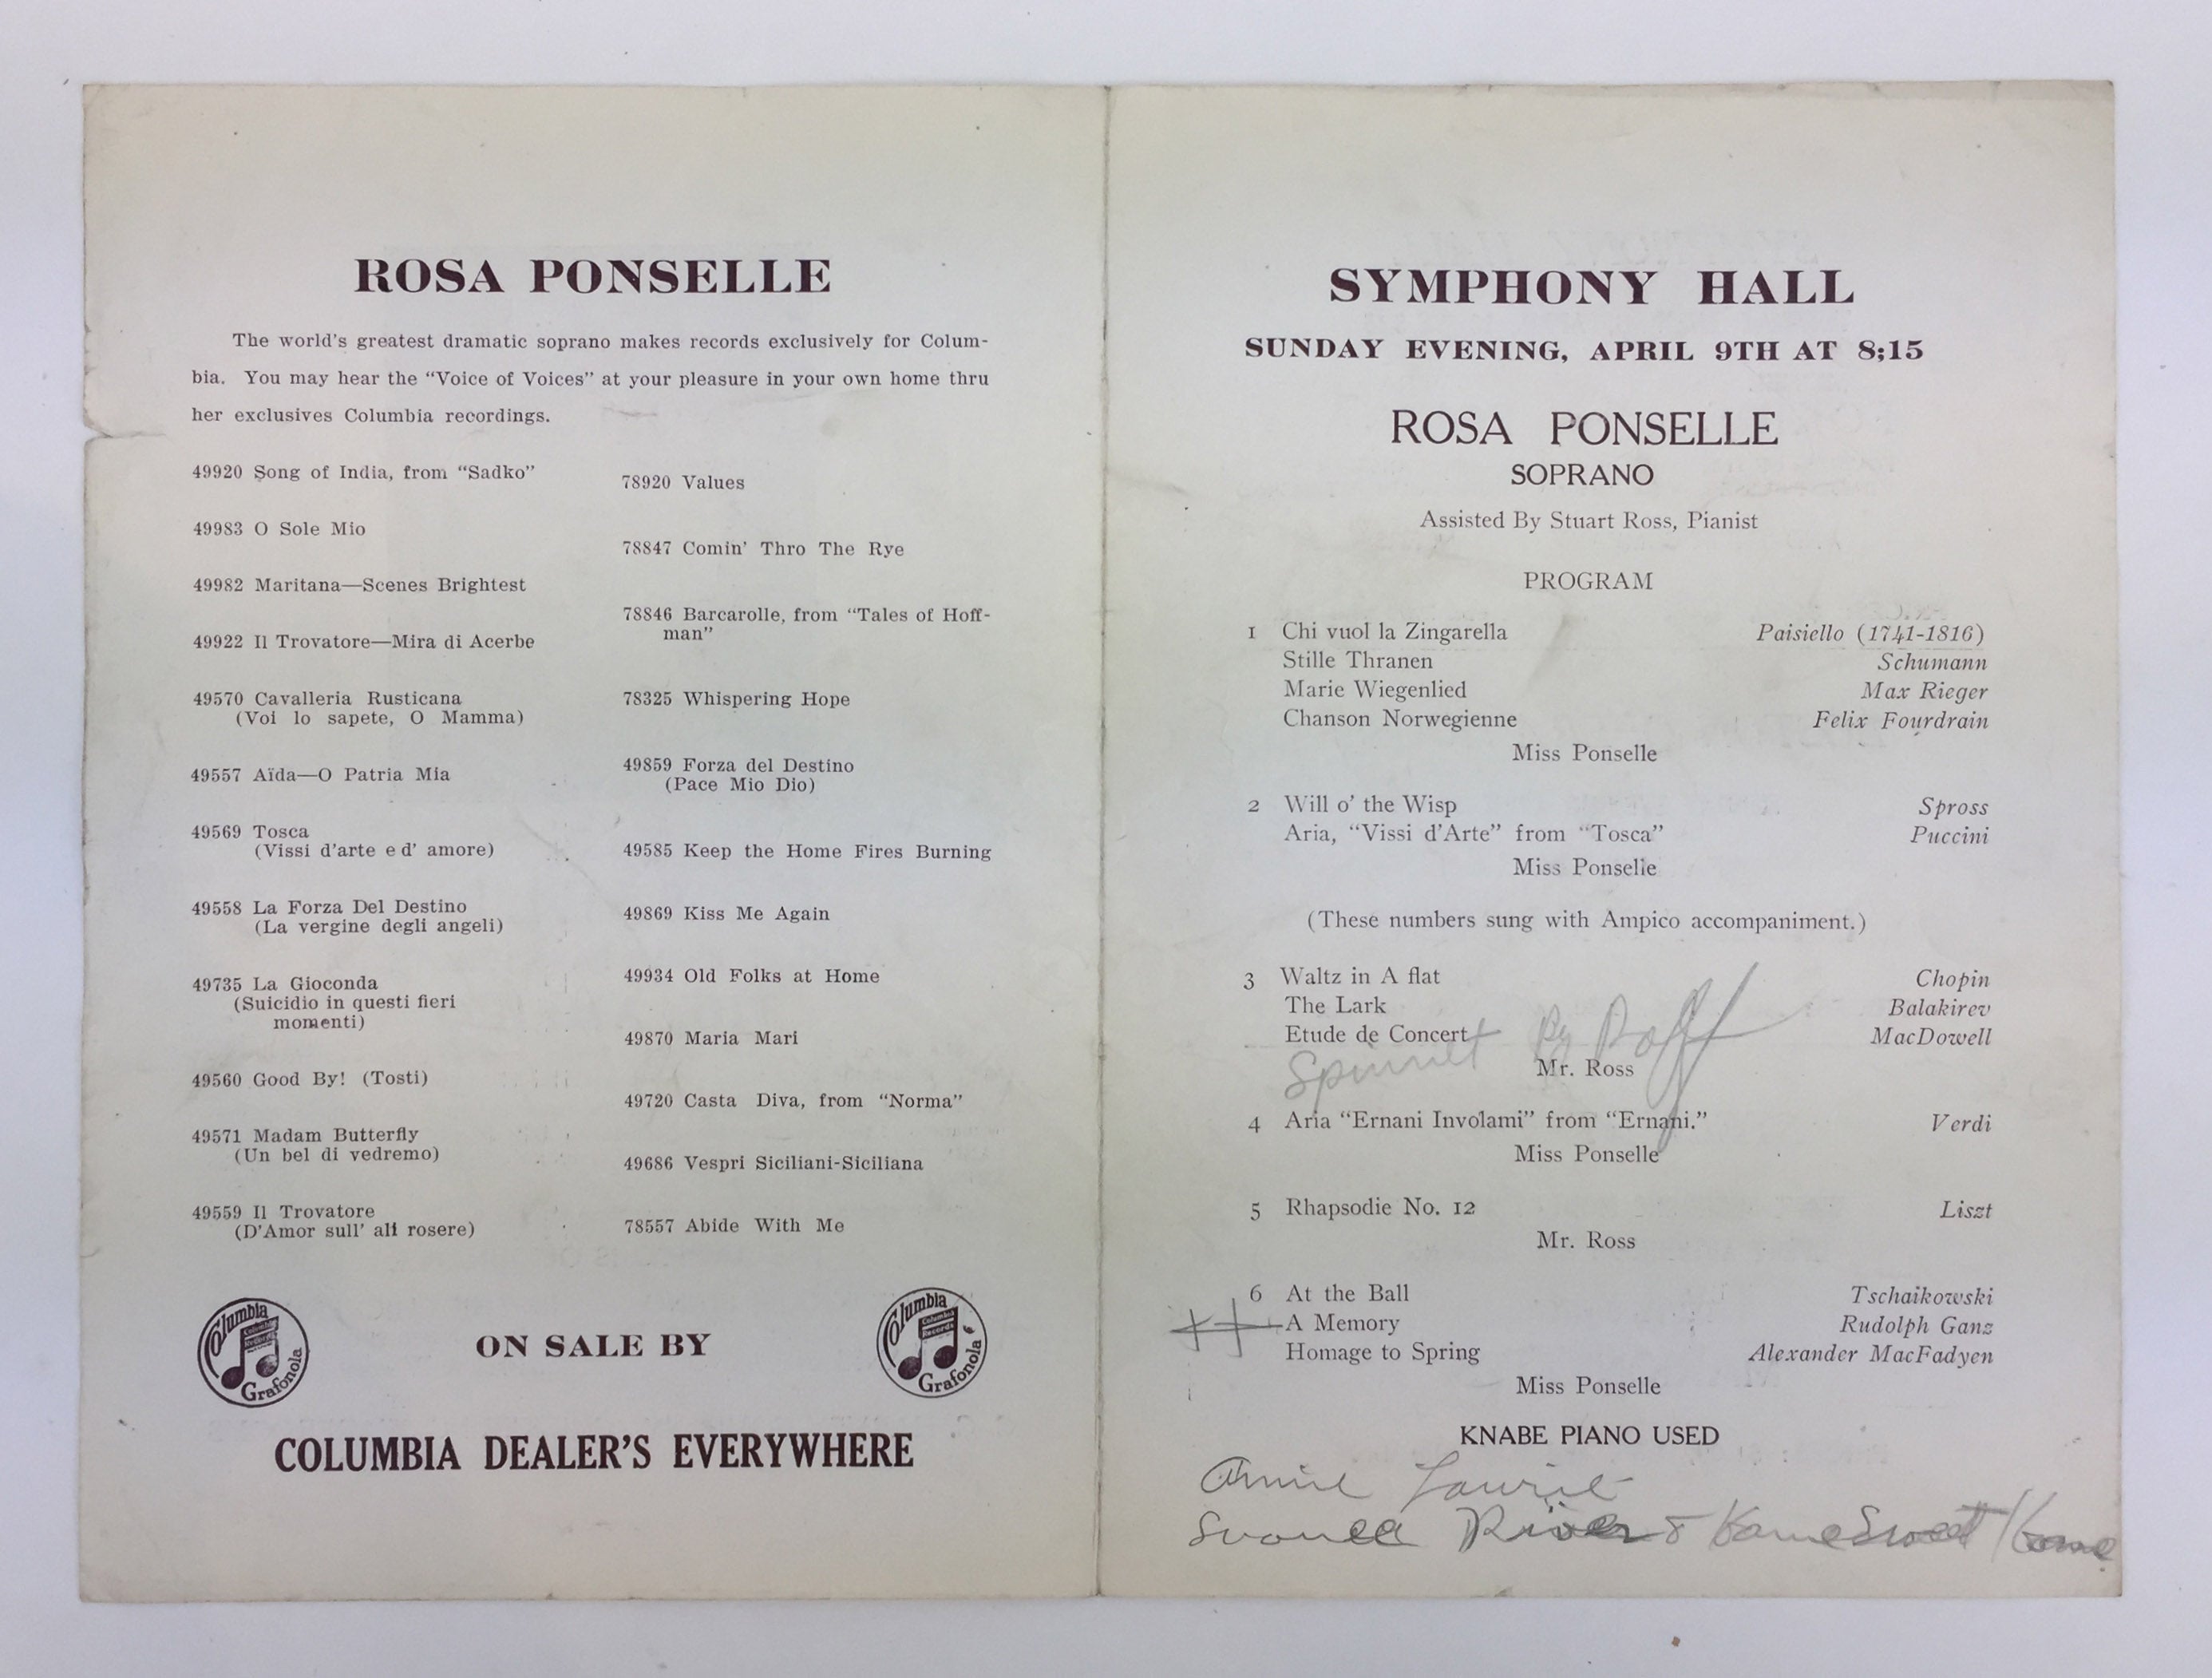 ROSA PONSELLE
The world's greatest dramatic soprano makes records exclusively for Colum-
bia. You may hear the "Voice of Voices" at your pleasure in your own home thru
her exclusives Columbia recordings.
49920 Song of India, from "Sadko"
49983 O Sole Mio
49982 Maritana—Scenes Brightest
49922 Il Trovatore—Mira di Acerbe
49570 Cavalleria Rusticana
(Voi lo sapete, O Mamma)
49557 Aïda—O Patria Mia
49569 Tosca
(Vissi d'arte e d' amore)
49558 La Forza Del Destino
(La vergine degli angeli)
49735 La Gioconda
(Suicidio in questi fieri
momenti)
49560 Good By! (Tosti)
49571 Madam Butterfly
(Un bel di vedremo)
49559 Il Trovatore
(D'Amor sull' ali rosere)
78920 Values
78847 Comin' Thro The Rye
78846 Barcarolle, from "Tales of Hoff-
man"
78325 Whispering Hope
49859 Forza del Destino
(Pace Mio Dio)
49585 Keep the Home Fires Burning
49869 Kiss Me Again
49934 Old Folks at Home
49870 Maria Mari
49720 Casta Diva, from "Norma"
49686 Vespri Siciliani-Siciliana
78557 Abide With Me
Columbia
Grafonola
ON SALE BY
Columbia
Columbia
Records
Grafonola
COLUMBIA DEALER'S EVERYWHERE
SYMPHONY HALL
SUNDAY EVENING, APRIL 9TH AT 8;15
ROSA PONSELLE
SOPRANO
Assisted By Stuart Ross, Pianist
PROGRAM
1 Chi vuol la Zingarella Paisiello (1741-1816)
Stille Thranen Schumann
Marie Wiegenlied Max Rieger
Chanson Norwegienne Felix Fourdrain
Miss Ponselle
2 Will o' the Wisp Spross
Aria, "Vissi d'Arte" from "Tosca" Puccini
Miss Ponselle
(These numbers sung with Ampico accompaniment.)
3 Waltz in A flat Chopin
The Lark Balakirev
Etude de Concert MacDowell
By Raff
Mr. Ross
4 Aria "Ernani Involami" from "Ernani." Verdi
Miss Ponselle
5 Rhapsodie No. 12 Liszt
Mr. Ross
6 At the Ball Tschaikowski
A Memory Rudolph Ganz
Homage to Spring Alexander MacFadyen
Miss Ponselle
KNABE PIANO USED
Annie Laurie
Swanee River & Home Sweet Home